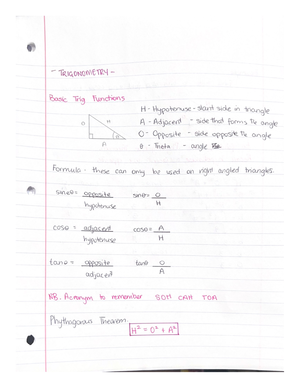 - TRIGONOMETRY -
Basic Trig Functions
H - Hypotenuse - slant side in triangle
A - Adjacent - side that forms the angle
O - Opposite - side opposite the angle
θ - Theta - angle
O H θ
A
Formula - these can only be used on right angled triangles.
sinθ = opposite / hypotenuse sinθ = O / H
cosθ = adjacent / hypotenuse cosθ = A / H
tanθ = opposite / adjacent tanθ O / A
NB. Acronym to remember SOH CAH TOA
Phythagoras Theorem
H² = O² + A²